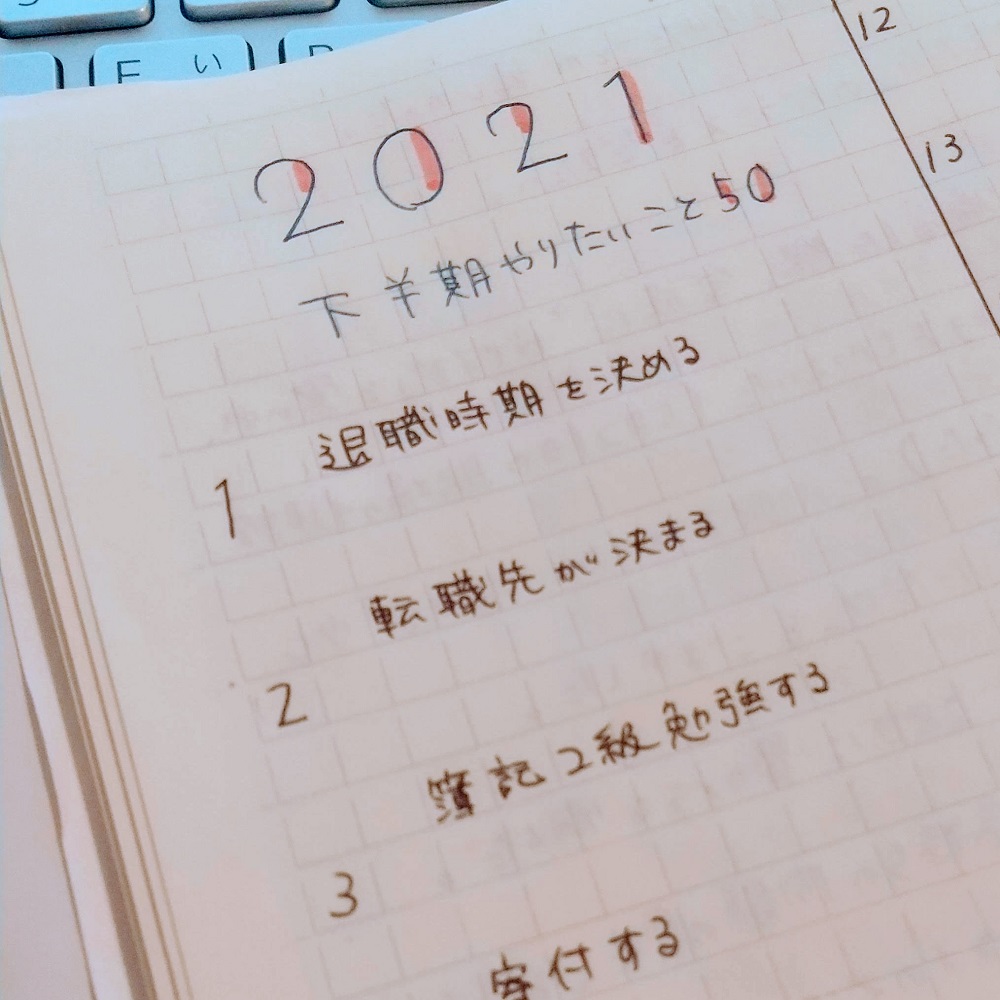 E い
2021
下半期やりたいこと50
退職時期を決める
1
転職先が決まる
2
簿記2級勉強する
3
寄付する
12
13